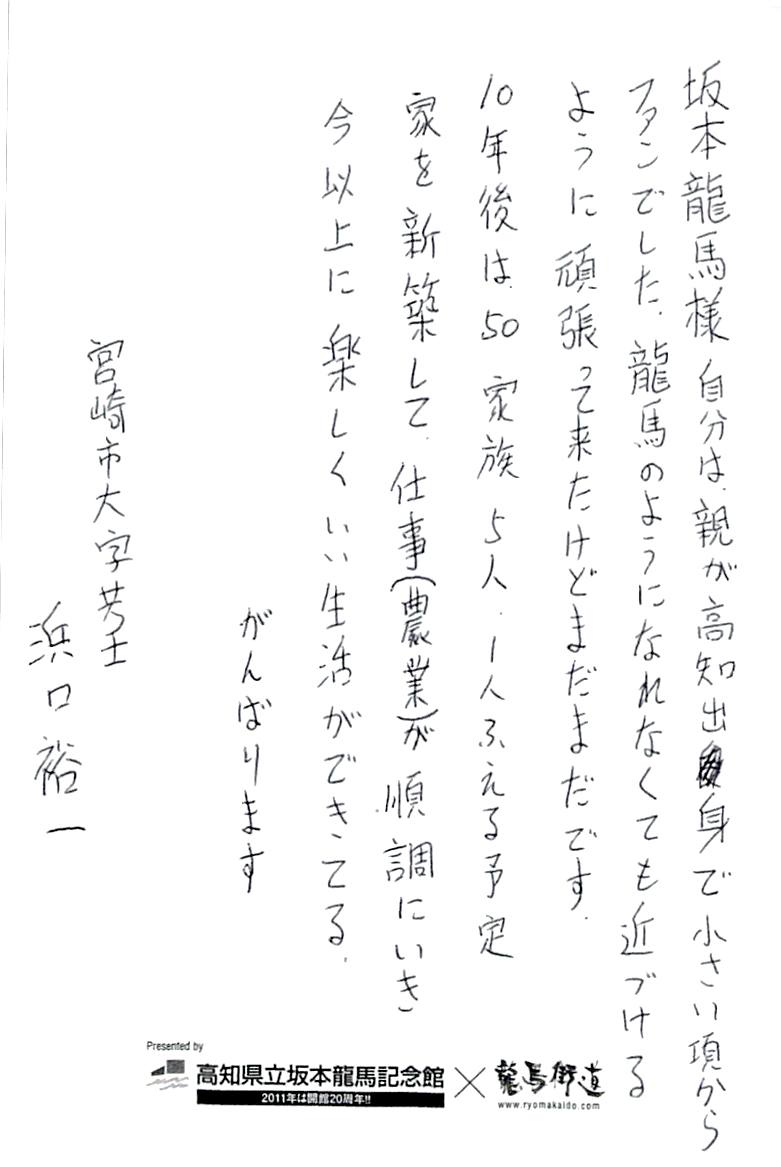 坂本龍馬様 自分は、親が高知出身で小さい項から
ファンでした、龍馬のようになれなくても近づける
ように頑張って来たけどまだまだです、
10年後は、50 家族5人、1人ふえる予定
家を新築して、仕事(農業)が順調にいき
今以上に楽しくいい生活ができてる、
がんばります
宮崎市大字芳士
浜口裕一
Presented by
高知県立坂本龍馬記念館
2011年は開館20周年!!
×
龍馬街道
www.ryomakaido.com